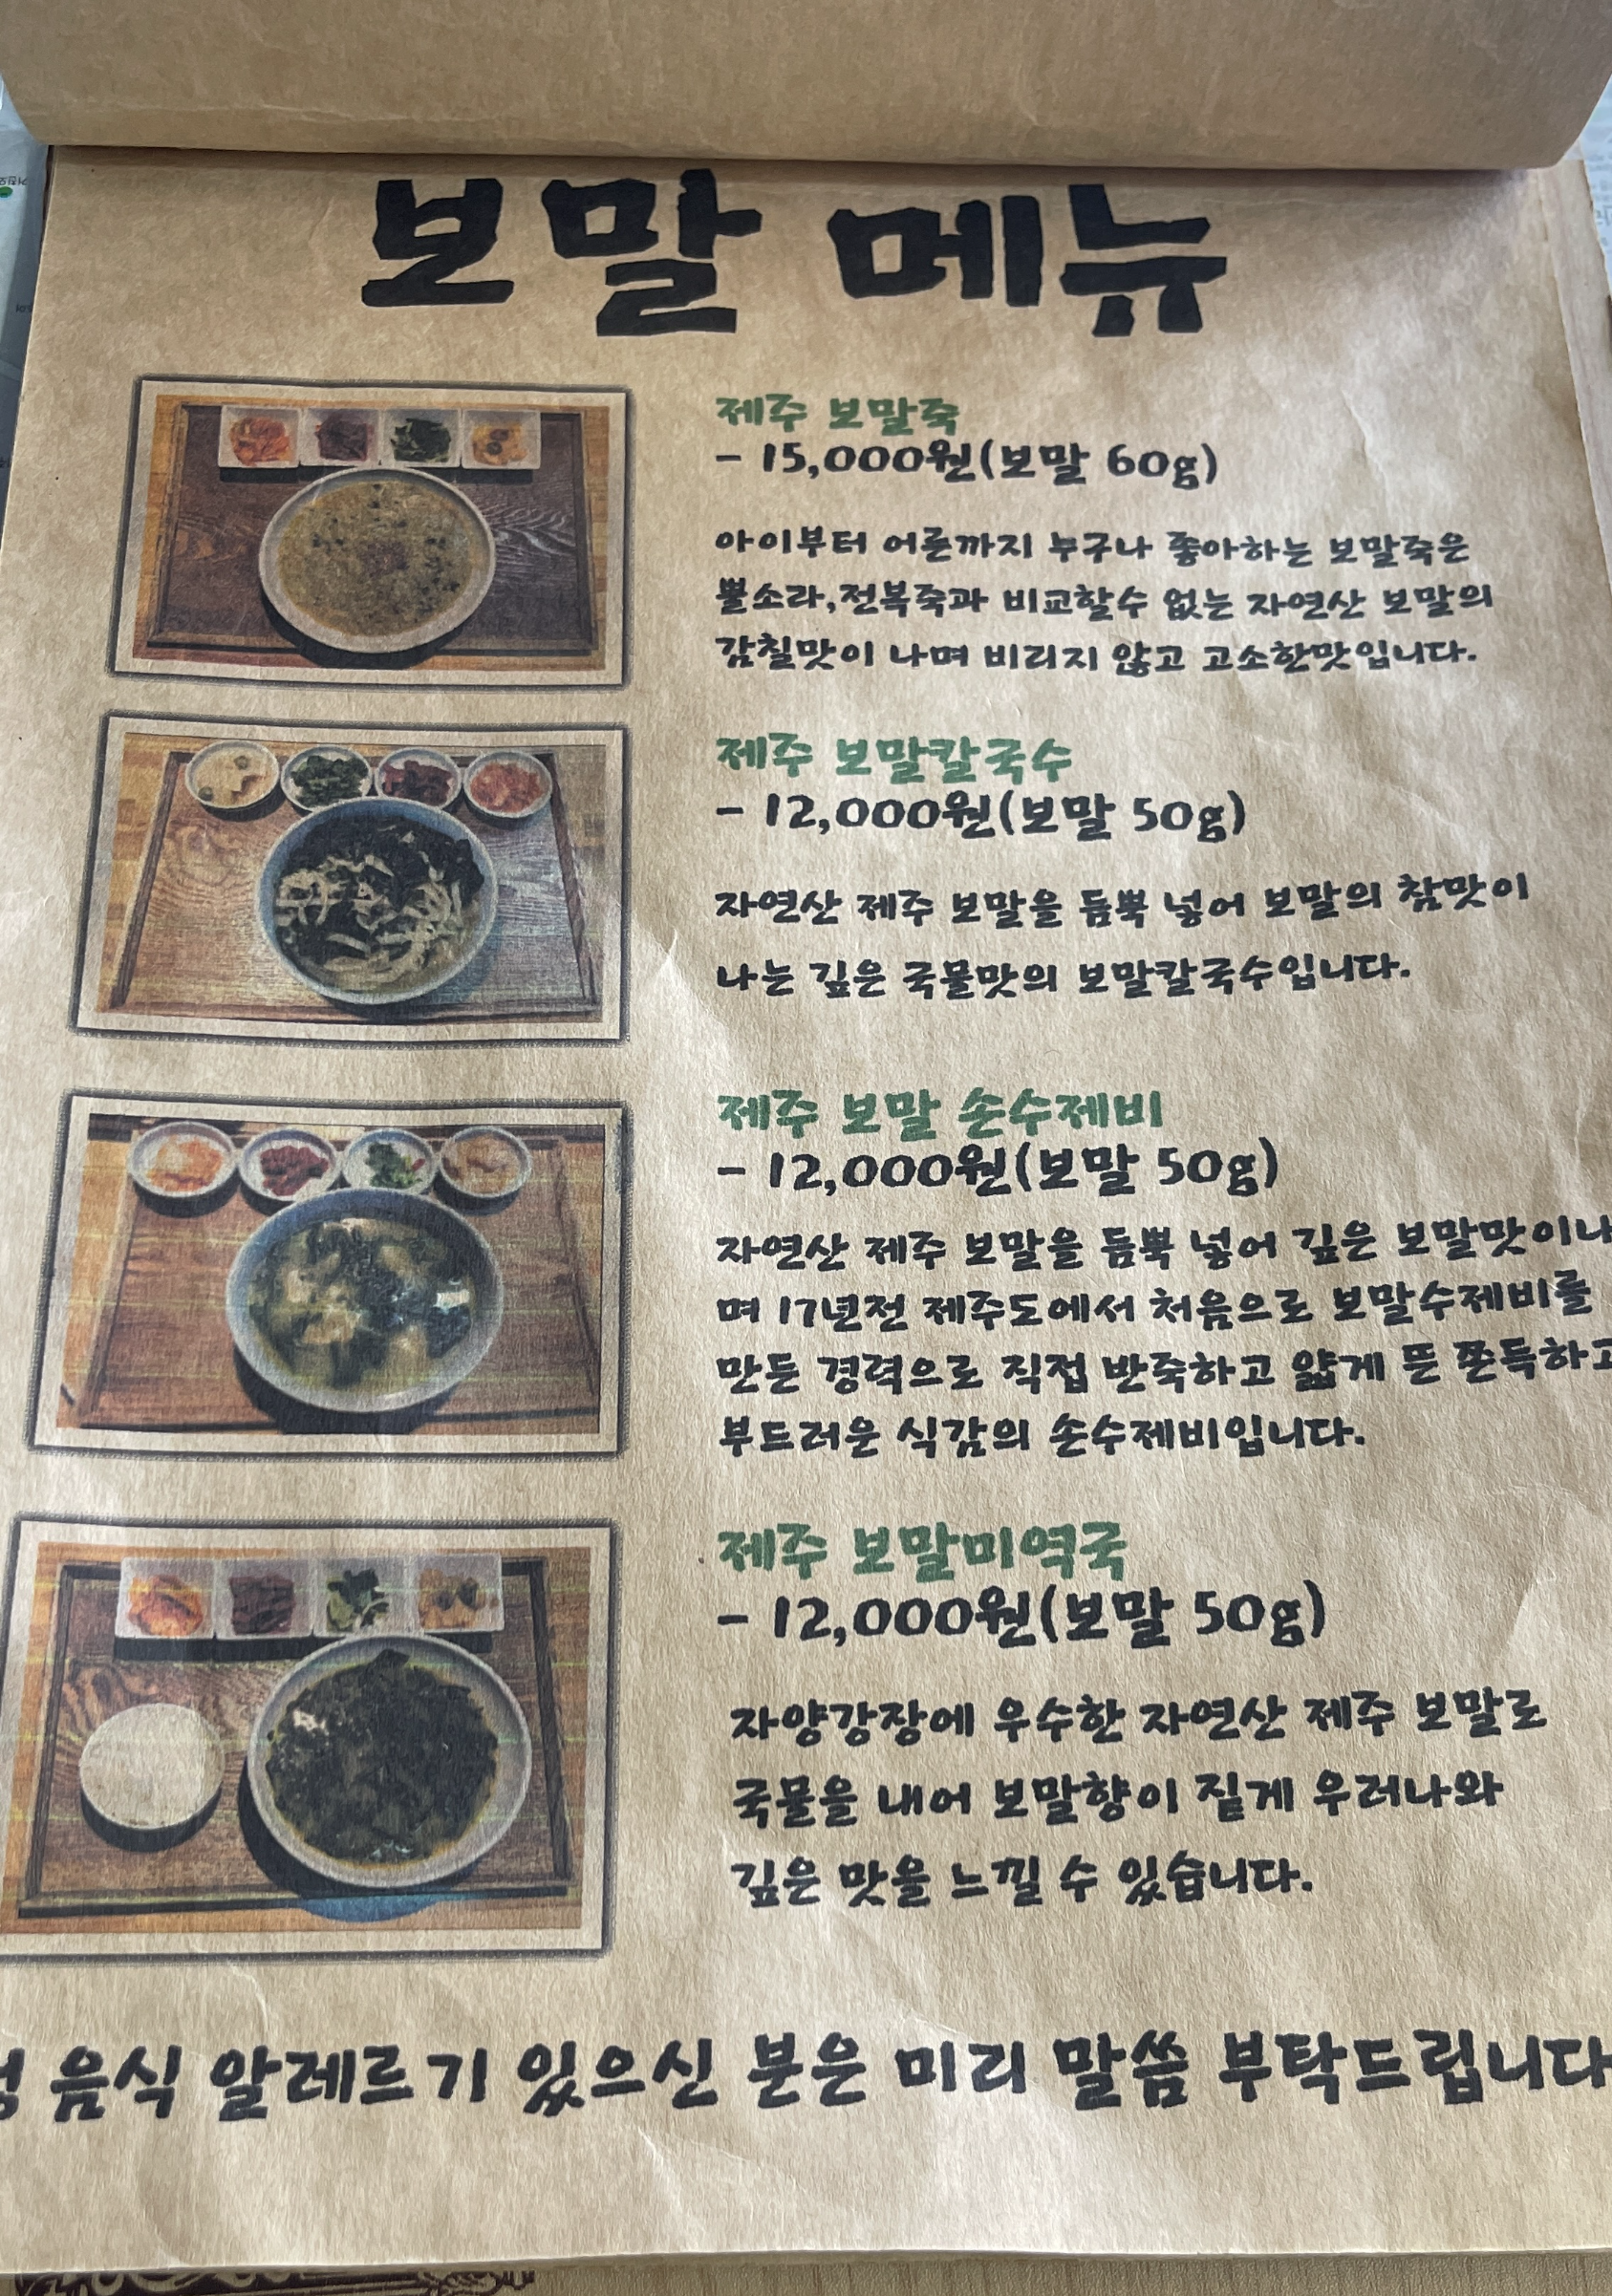 보말 메뉴
제주 보말죽
- 15,000원(보말 60g)
아이부터 어른까지 누구나 좋아하는 보말죽은
뿔소라,전복죽과 비교할수 없는 자연산 보말의
감칠맛이 나며 비리지 않고 고소한맛입니다.
제주 보말칼국수
- 12,000원(보말 50g)
자연산 제주 보말을 듬뿍 넣어 보말의 참맛이
나는 깊은 국물맛의 보말칼국수입니다.
제주 보말 손수제비
- 12,000원(보말 50g)
자연산 제주 보말을 듬뿍 넣어 깊은 보말맛이나
며 17년전 제주도에서 처음으로 보말수제비를
만든 경력으로 직접 반죽하고 얇게 뜬 쫀득하고
부드러운 식감의 손수제비입니다.
제주 보말미역국
- 12,000원(보말 50g)
자양강장에 우수한 자연산 제주 보말로
국물을 내어 보말향이 짙게 우러나와
깊은 맛을 느낄 수 있습니다.
음식 알레르기 있으신 분은 미리 말씀 부탁드립니다